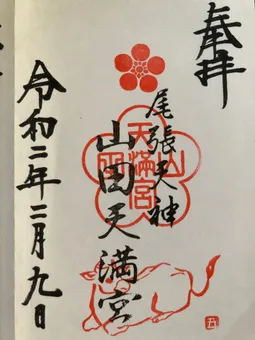 奉拝
尾張天神
山田天満宮
令和二年二月九日
天満宮
山田
五